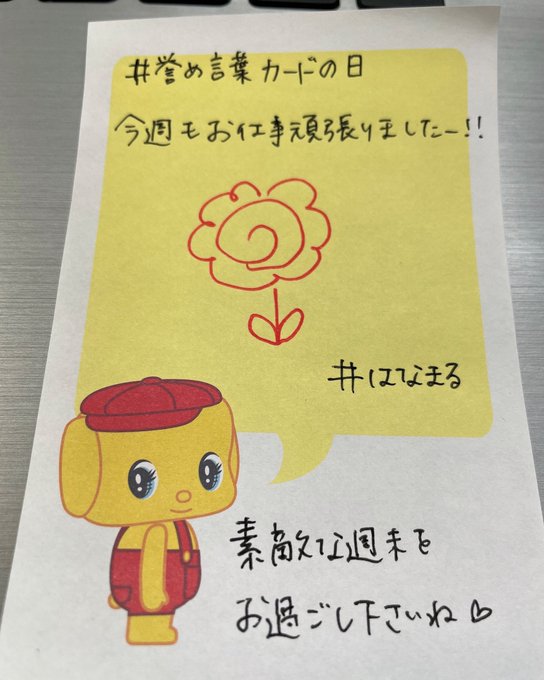 #誉め言葉カードの日
今週もお仕事頑張りましたー!!
#はなまる
素敵な週末を
お過ごし下さいね♡